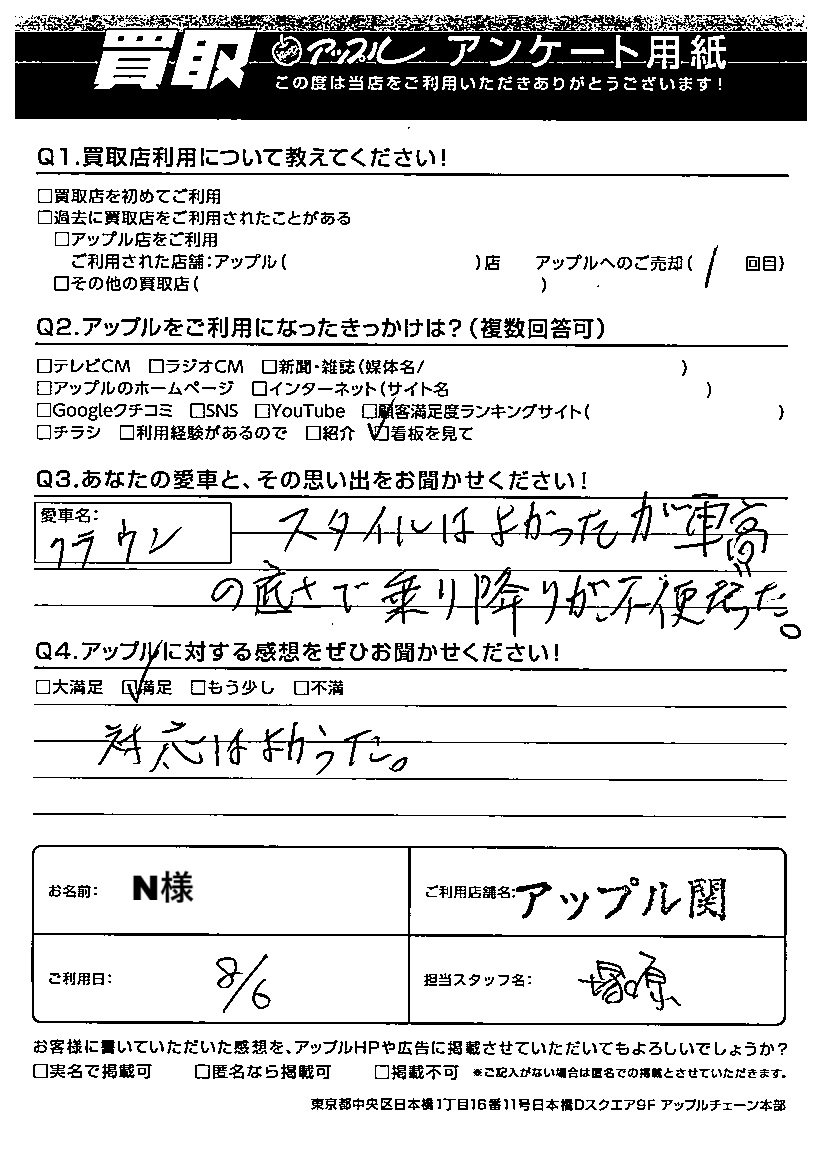 買取 アップル アンケート用紙
この度は当店をご利用いただきありがとうございます！
Q1.買取店利用について教えてください！
□買取店を初めてご利用
□過去に買取店をご利用されたことがある
□アップル店をご利用
ご利用された店舗：アップル（　　　）店　アップルへのご売却（1 回目）
□その他の買取店（　　　）
Q2.アップルをご利用になったきっかけは？（複数回答可）
□テレビCM □ラジオCM □新聞・雑誌（媒体名/　　　）
□アップルのホームページ □インターネット（サイト名　　　）
□Googleクチコミ □SNS □YouTube □顧客満足度ランキングサイト（　　　）
□チラシ □利用経験があるので □紹介 ☑看板を見て
Q3.あなたの愛車と、その思い出をお聞かせください！
愛車名：
クラウン
スタイルはよかったが車高
の底さで乗り降りが不便だった。
Q4.アップルに対する感想をぜひお聞かせください！
□大満足 ☑満足 □もう少し □不満
対応はよかった。
お名前： N様　ご利用店舗名：アップル関
ご利用日： 8/6　担当スタッフ名： 塚原
お客様に書いていただいた感想を、アップルHPや広告に掲載させていただいてもよろしいでしょうか？
□実名で掲載可 □匿名なら掲載可 □掲載不可 ※ご記入がない場合は匿名での掲載とさせていただきます。
東京都中央区日本橋1丁目16番11号日本橋Dスクエア9F アップルチェーン本部